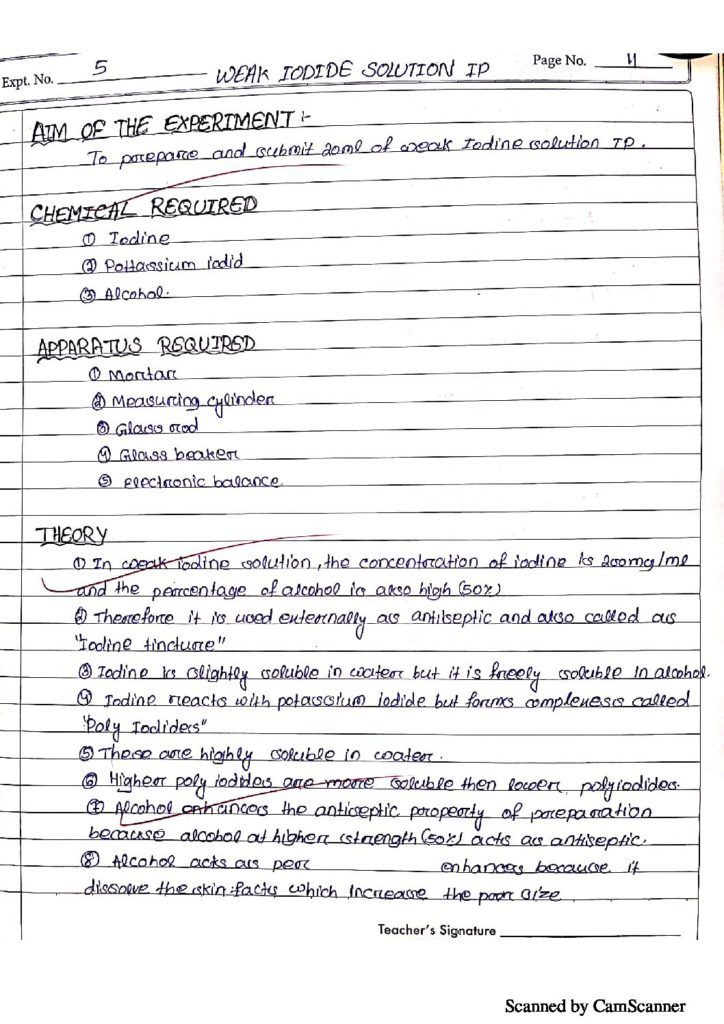 Expt. No. 5 WEAK IODIDE SOLUTION IP Page No. 11
AIM OF THE EXPERIMENT :-
To prepare and submit 20ml of weak Iodine solution IP.
CHEMICAL REQUIRED
① Iodine
② Pottassium iodid
③ Alcohol.
APPARATUS REQUIRED
① Mortar
② Measuring cylinder
③ Glass rod
④ Glass beaker
⑤ Electronic balance.
THEORY
① In weak iodine solution, the concentration of iodine is 200mg/ml
and the percentage of alcohol is also high (50%)
② Therefore it is used externally as antilseptic and also called as
"Iodine tincture"
③ Iodine is slightly soluble in water but it is freely soluble in alcohol.
④ Iodine reacts with potasssium iodide but forms complexess called
"Poly Iodiders"
⑤ These are highly soluble in water.
⑥ Higher poly iodiders are more soluble then lower polyiodides.
⑦ Alcohol enhances the antiseptic property of preparation
because alcohol at higher strength (50%) acts as antiseptic.
⑧ Alcohol acts as per enhances because it
dissolve the skin facts which increase the porr size
Teacher's Signature
Scanned by CamScanner